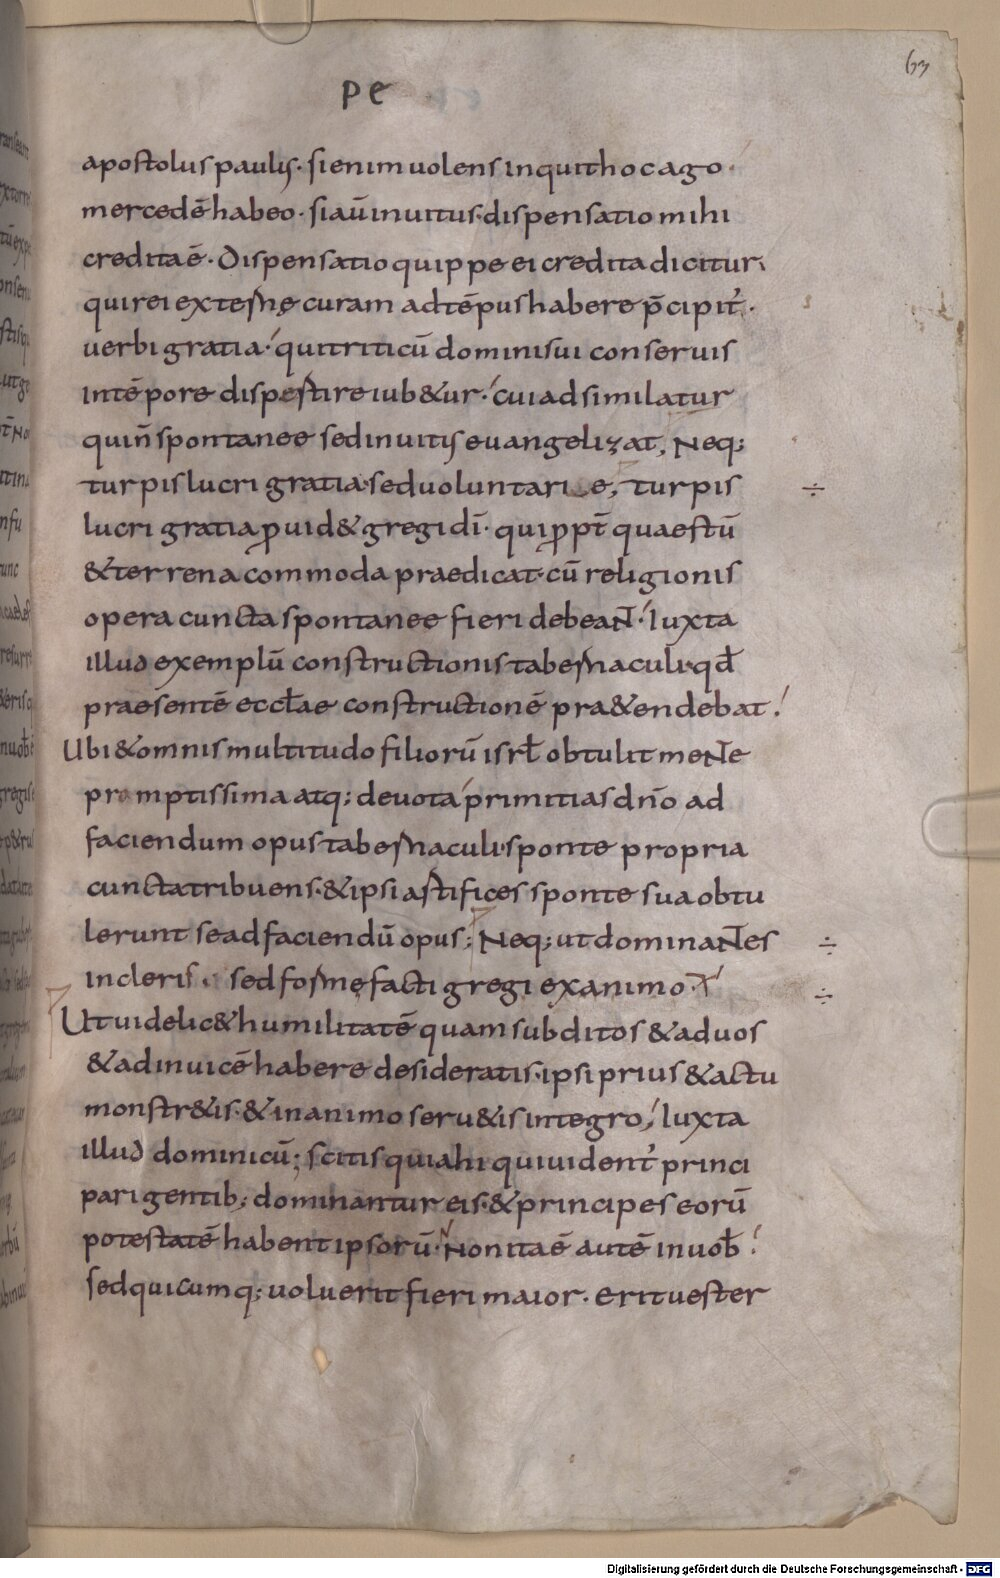 63
pe
apostolus paulus. si enim uolens inquit hoc ago.
mercedē habeo. si aū inuitus. dispensatio mihi
credita ē. Dispensatio quippe ei credita dicitur,
qui rei externę curam ad tēpus habere p̄cipit᷑.
uerbi gratia. qui triticū domini sui conseruis
in tēpore dispertire iub&ur. cui adsimilatur
qui n̄ spontanee sed inuitus euangelizat, Neq;
turpis lucri gratia. sed uoluntari e, turpis
lucri gratia ꝓuid& gregi dī. qui ꝓpt̄ quaestū
& terrena commoda praedicat. cū religionis
opera cuncta spontanee fieri debeant. Iuxta
illud exemplū constructionis tabernaculi. qd̄
praesentē eccłae constructionē pra&endebat.
Ubi & omnis multitudo filiorū isrł obtulit mente
promptissima atq; deuota primitias dn̄o ad
faciendum opus tabernaculi. sponte propria
cuncta tribuens. & ipsi artifices sponte sua obtu
lerunt se ad faciendū opus; Neq; ut dominantes
in cleris. sed formę facti gregi ex animo.
Ut uidelic& humilitatē quam subditos & ad uos
& ad inuicē habere desideratis. ipsi prius & actu
monstr&is. & in animo seru&is integro, Iuxta
illud dominicū; scitis quia hi qui uident᷑ princi
pari gentib; dominantur eis. & principes eorū
potestatē habent ipsorū. Non ita ē autē in uob̄.
sed quicumq; uoluerit fieri maior. erit uester
Digitalisierung gefördert durch die Deutsche Forschungsgemeinschaft - DFG